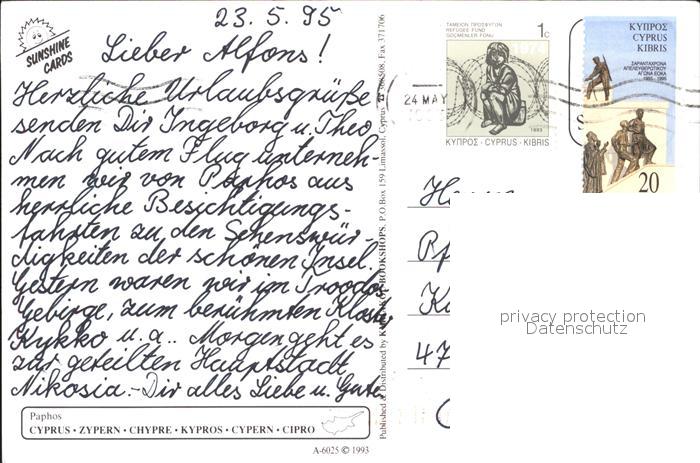 23.5.95
SUNSHINE
CARDS
Lieber Alfons!
Herzliche Urlaubsgrüße
senden Dir Ingeborg u. Theo
Nach gutem Flug unterneh-
men wir von Paphos aus
herrliche Besichtigungs-
fahrten zu den Sehenswür-
digkeiten der schönen Insel.
Gestern waren wir im Troodos
Gebirge, zum berühmten Kloster
Kykko u. a.. Morgen geht es
zur geteilten Hauptstadt
Nikosia. - Dir alles Liebe u. Gute
Paphos
CYPRUS · ZYPERN · CHYPRE · KYPROS · CYPERN · CIPRO
A-6025 © 1993
Published & Distributed by BOOKSHOPS, P.O Box 159 Limassol, Cyprus Fax 371706
ΤΑΜΕΙΟΝ ΠΡΟΣΦΥΓΩΝ
REFUGEE FUND
GÖÇMENLER FONU
1c
1974
1993
ΚΥΠΡΟΣ · CYPRUS · KIBRIS
24 MAY
ΚΥΠΡΟΣ
CYPRUS
KIBRIS
ΣΑΡΑΝΤΑΧΡΟΝΑ
ΑΠΕΛΕΥΘΕΡΩΤΙΚΟΥ
ΑΓΩΝΑ ΕΟΚΑ
1955-1995
20
47
privacy protection
Datenschutz